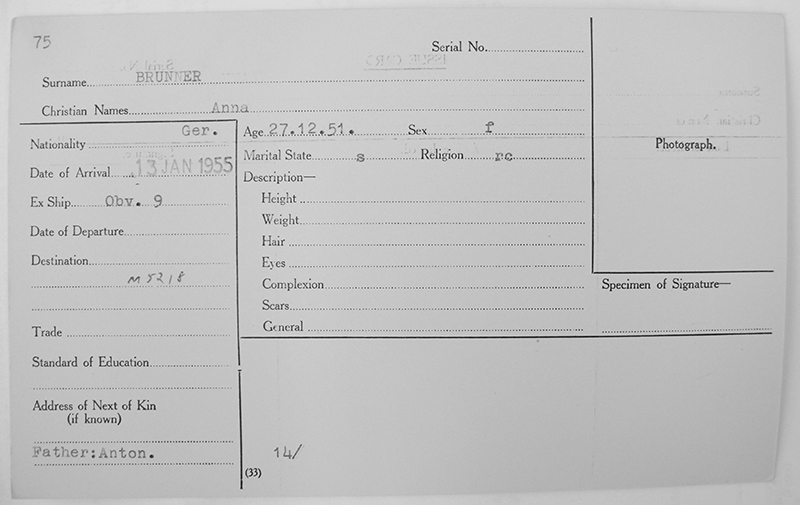 75
Serial No.
ISSUE CARD
Surname BRUNNER
Christian Names Anna
Nationality Ger.
Date of Arrival 13 JAN 1955
Ex Ship Obv. 9
Date of Departure
Destination
M 5218
Trade
Standard of Education
Address of Next of Kin
(if known)
Father:Anton.
Age 27.12.51. Sex f
Marital State s Religion rc
Description—
Height
Weight
Hair
Eyes
Complexion
Scars
General
14/
(33)
Photograph.
Specimen of Signature—